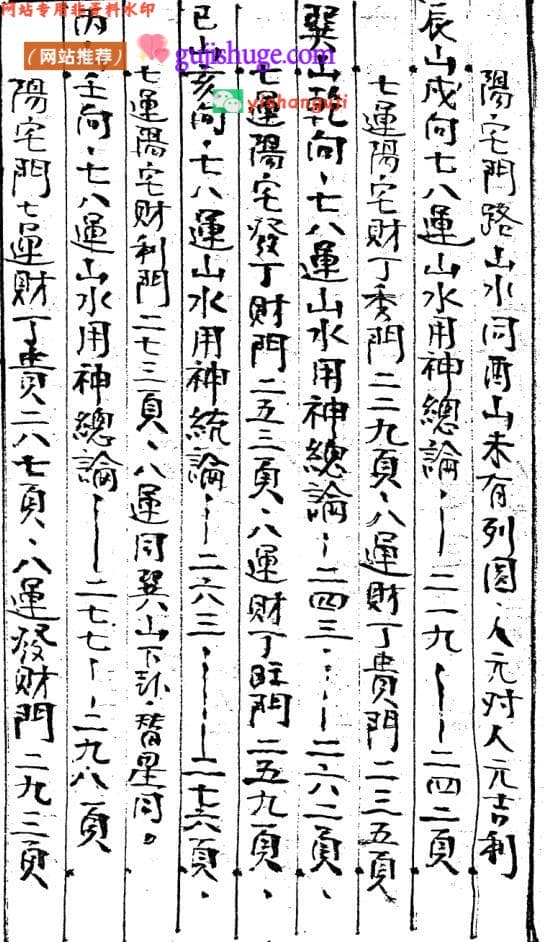 网站专用非资料水印
(网站推荐)
gujishuge.com
yishangguji
陽宅門路山水同酉山未有列圖、人元对人元吉利
辰山戌向七八運山水用神總論、——二一九——二四二頁
七運陽宅財丁秀門二二九頁、八運財丁貴門二三五頁
巽山乾向、七八運山水用神總論——二四三、——二六二頁、
七運陽宅發丁財門二五三頁、八運財丁旺門二五九頁、
巳山亥向、七八運山水用神統論、——二六三——二七六頁、
七運陽宅財利門二七三頁、八運同巽山下卦、替星同。
丙山壬向、七八運山水用神總論、——二七七——二九八頁
陽宅門七運財丁貴二八七頁、八運發財門二九三頁